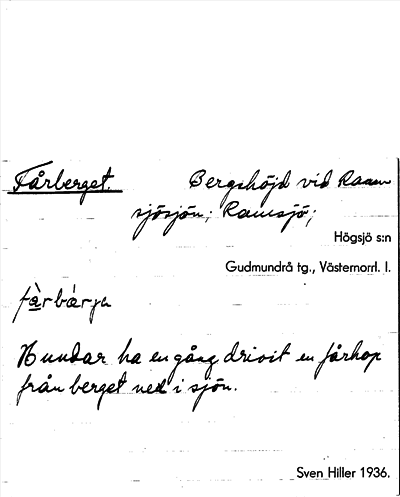 Fårberget. Bergshöjd vid Ramm
sjösjön; Ramsjö;
Högsjö s:n
Gudmundrå tg., Västernorrl. l.
fàrbárja
Hundar ha en gång drivit en fårhop
från berget ned i sjön.
Sven Hiller 1936.